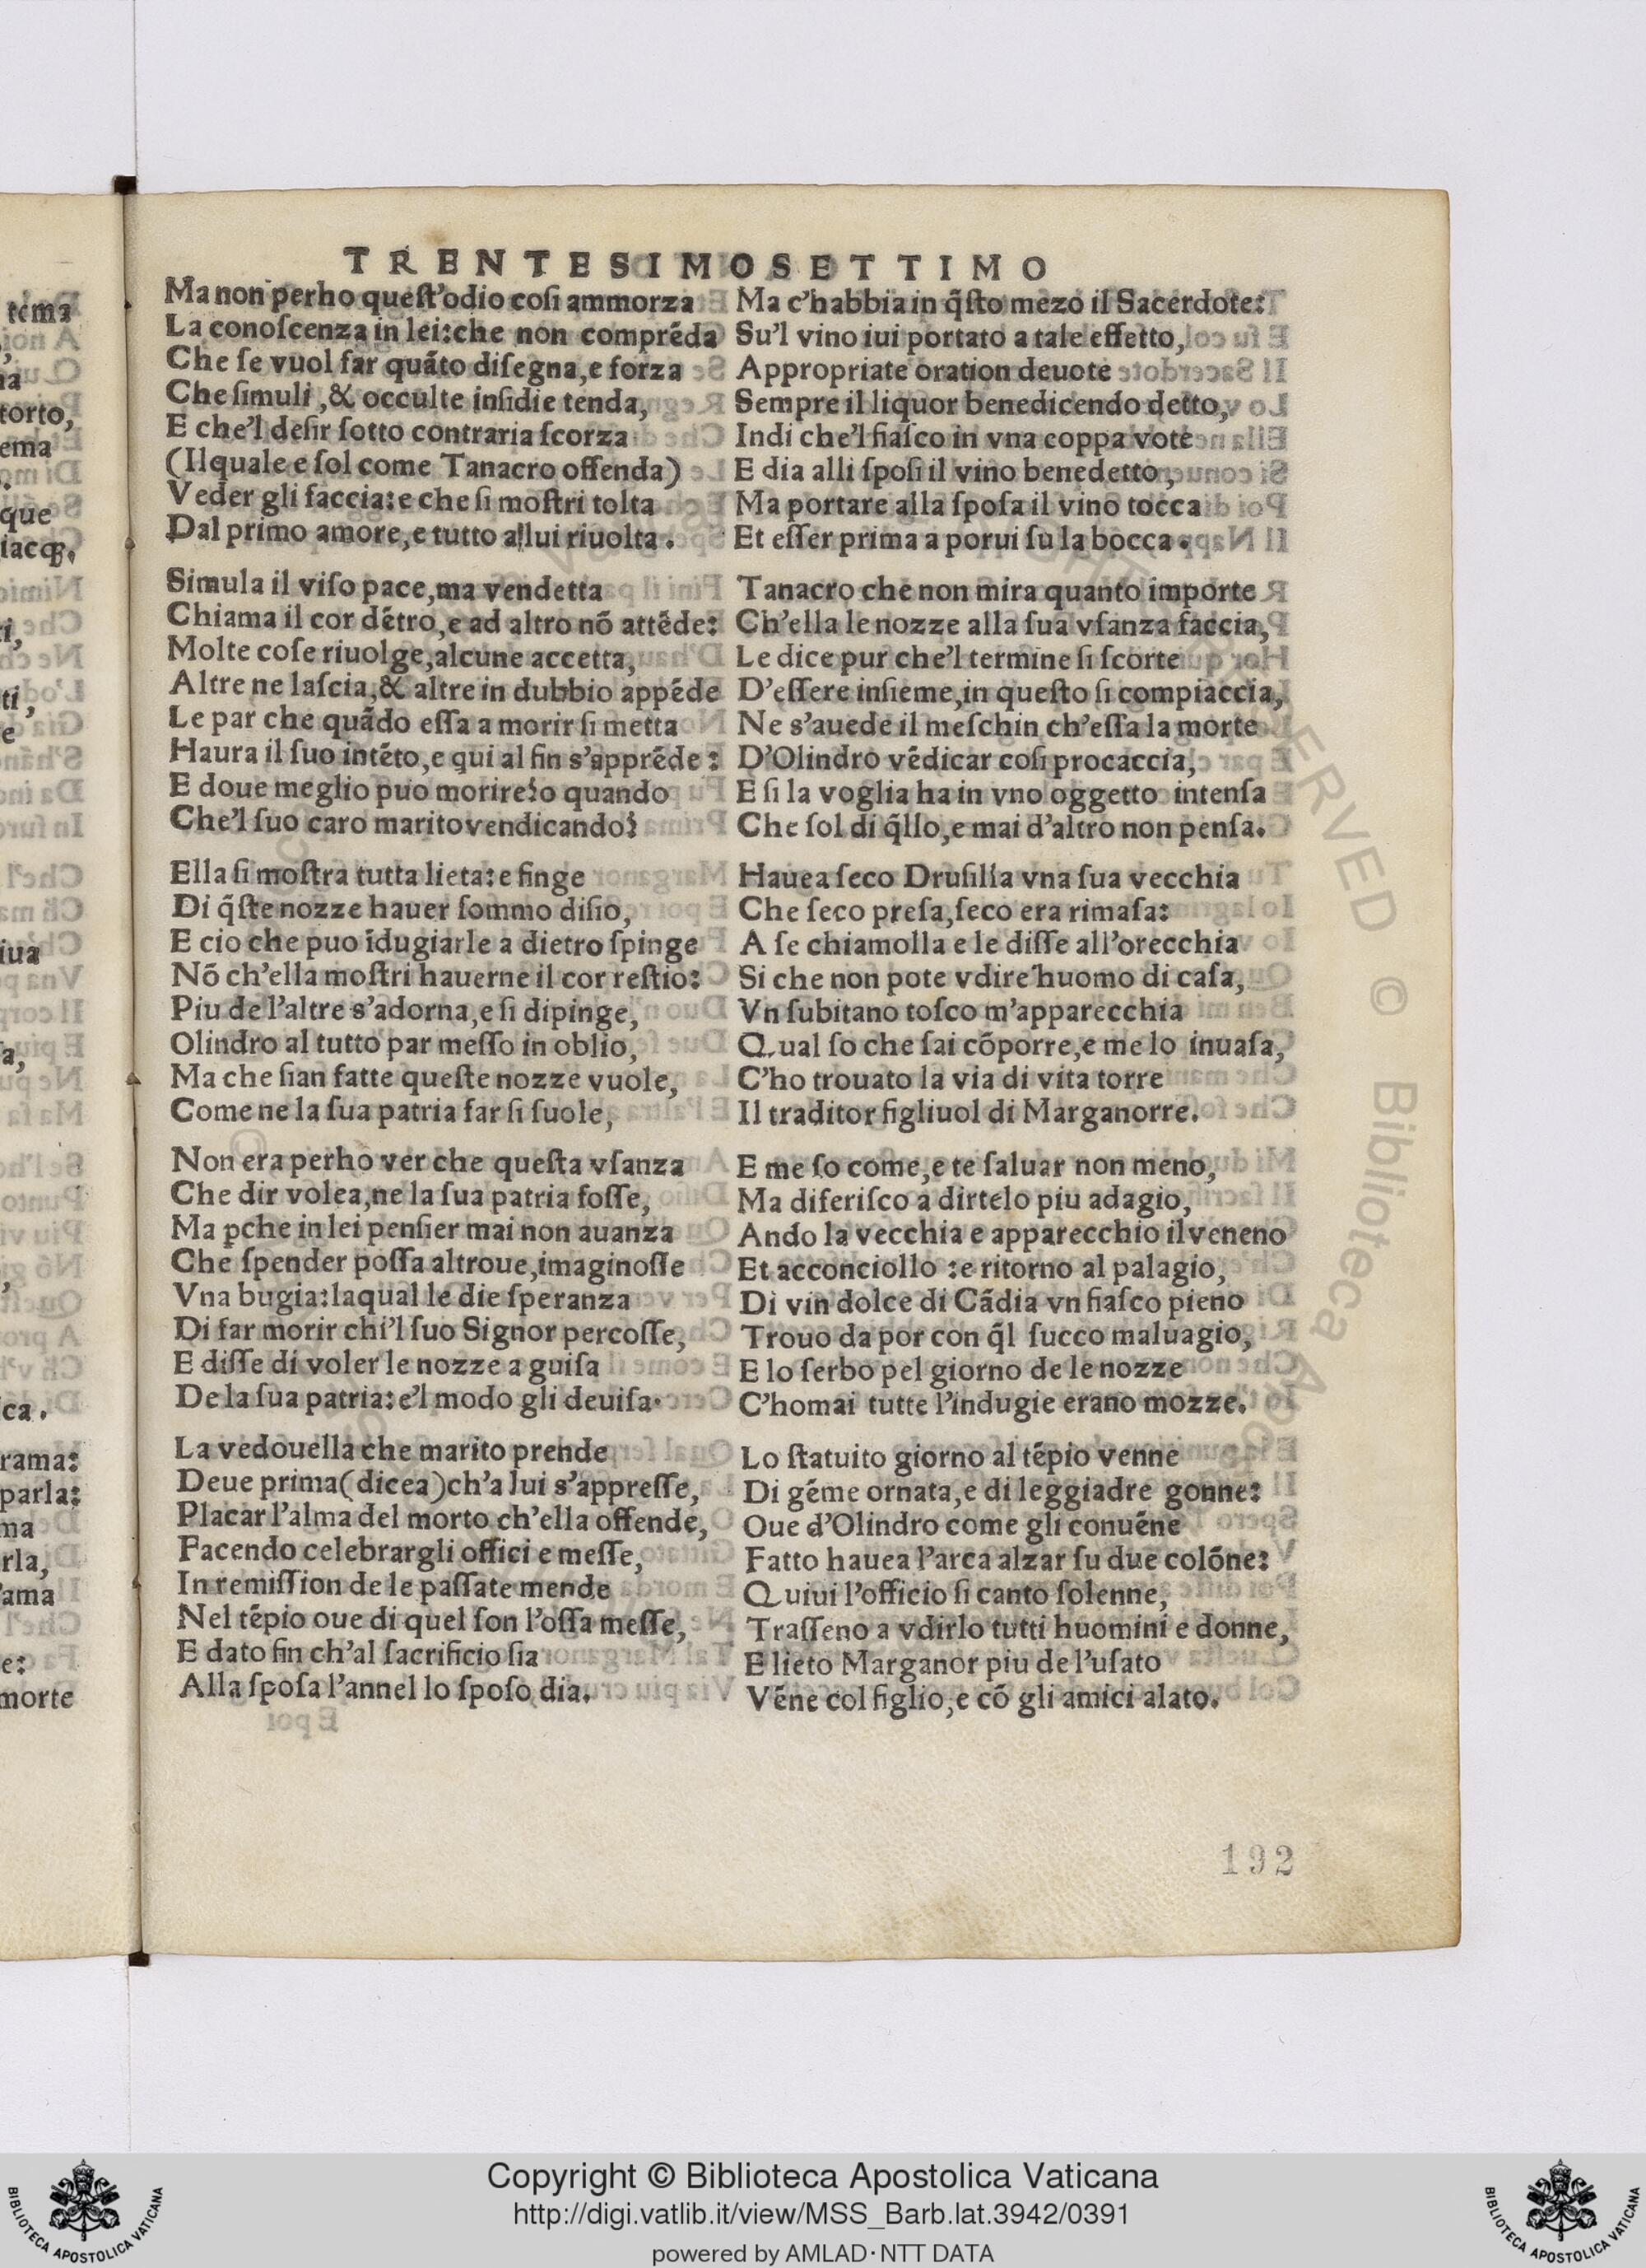 TRENTESIMOSETTIMO
Ma non perho queſt'odio coſi ammorza
La conoſcenza in lei:che non compréda
Che ſe vuol far quãto diſegna,e forza
Che ſimuli,& occulte inſidie tenda,
E che'l deſir ſotto contraria ſcorza
(Ilquale e ſol come Tanacro offenda)
Veder gli faccia:e che ſi moſtri tolta
Dal primo amore,e tutto a lui riuolta.
Simula il viſo pace,ma vendetta
Chiama il cor détro,e ad altro nõ attéde:
Molte coſe riuolge,alcune accetta,
Altre ne laſcia,& altre in dubbio appéde
Le par che quãdo eſſa a morir ſi metta
Haura il ſuo intéto,e qui al fin s'appréde:
E doue meglio puo morire?o quando
Che'l ſuo caro marito vendicando?
Ella ſi moſtra tutta lieta:e finge
Di q̃ſte nozze hauer ſommo diſio,
E cio che puo ĩdugiarle a dietro ſpinge
Nõ ch'ella moſtri hauerne il cor reſtio:
Piu de l'altre s'adorna,e ſi dipinge,
Olindro al tutto par meſſo in oblio,
Ma che ſian fatte queſte nozze vuole,
Come ne la ſua patria far ſi ſuole,
Non era perho ver che queſta vſanza
Che dir volea,ne la ſua patria foſſe,
Ma ꝑche in lei penſier mai non auanza
Che ſpender poſſa altroue,imaginoſſe
Vna bugia:laqual le die ſperanza
Di far morir chi'l ſuo Signor percoſſe,
E diſſe di voler le nozze a guiſa
De la ſua patria:e'l modo gli deuiſa.
La vedouella che marito prende
Deue prima(dicea)ch'a lui s'appreſſe,
Placar l'alma del morto ch'ella offende,
Facendo celebrargli offici e meſſe,
In remiſſion de le paſſate mende
Nel tépio oue di quel ſon l'oſſa meſſe,
E dato fin ch'al ſacrificio ſia
Alla ſpoſa l'annel lo ſpoſo dia.
Ma c'habbia in q̃ſto mezo il Sacerdote:
Su'l vino iui portato a tale effetto,
Appropriate oration deuote
Sempre il liquor benedicendo detto,
Indi che'l fiaſco in vna coppa vote
E dia alli ſpoſi il vino benedetto,
Ma portare alla ſpoſa il vino tocca
Et eſſer prima a porui ſu la bocca.
Tanacro che non mira quanto importe
Ch'ella le nozze alla ſua vſanza faccia,
Le dice pur che'l termine ſi ſcorte
D'eſſere inſieme,in queſto ſi compiaccia,
Ne s'auede il meſchin ch'eſſa la morte
D'Olindro védicar coſi procaccia,
E ſi la voglia ha in vno oggetto intenſa
Che ſol di q̃llo,e mai d'altro non penſa.
Hauea ſeco Druſilla vna ſua vecchia
Che ſeco preſa,ſeco era rimaſa:
A ſe chiamolla e le diſſe all'orecchia
Si che non pote vdire huomo di caſa,
Vn ſubitano toſco m'apparecchia
Qual ſo che ſai cõporre,e me lo inuaſa,
C'ho trouato la via di vita torre
Il traditor figliuol di Marganorre.
E me ſo come,e te ſaluar non meno,
Ma diferiſco a dirtelo piu adagio,
Ando la vecchia e apparecchio il veneno
Et acconciollo:e ritorno al palagio,
Di vin dolce di Cãdia vn fiaſco pieno
Trouo da por con q̃l ſucco maluagio,
E lo ſerbo pel giorno de le nozze
C'homai tutte l'indugie erano mozze.
Lo ſtatuito giorno al tépio venne
Di géme ornata,e di leggiadre gonne:
Oue d'Olindro come gli conuéne
Fatto hauea l'arca alzar ſu due colõne:
Quiui l'officio ſi canto ſolenne,
Traſſeno a vdirlo tutti huomini e donne,
E lieto Marganor piu de l'uſato
Véne col figlio,e cõ gli amici alato.
192
Copyright © Biblioteca Apostolica Vaticana
http://digi.vatlib.it/view/MSS_Barb.lat.3942/0391
powered by AMLAD·NTT DATA
BIBLIOTECA APOSTOLICA VATICANA
BIBLIOTECA APOSTOLICA VATICANA